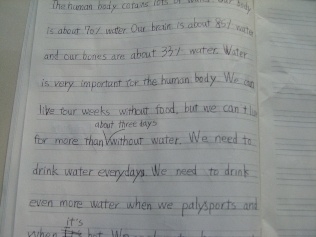 The human body contains lots of water. Our body
is about 70% water. Our brain is about 85% water
and our bones are about 33% water. Water
is very important for the human body. We can
live four weeks without food, but we can't live
about three days
for more than without water. We need to
drink water everydays. We need to drink
even more water when we palysports and
it's
when but We